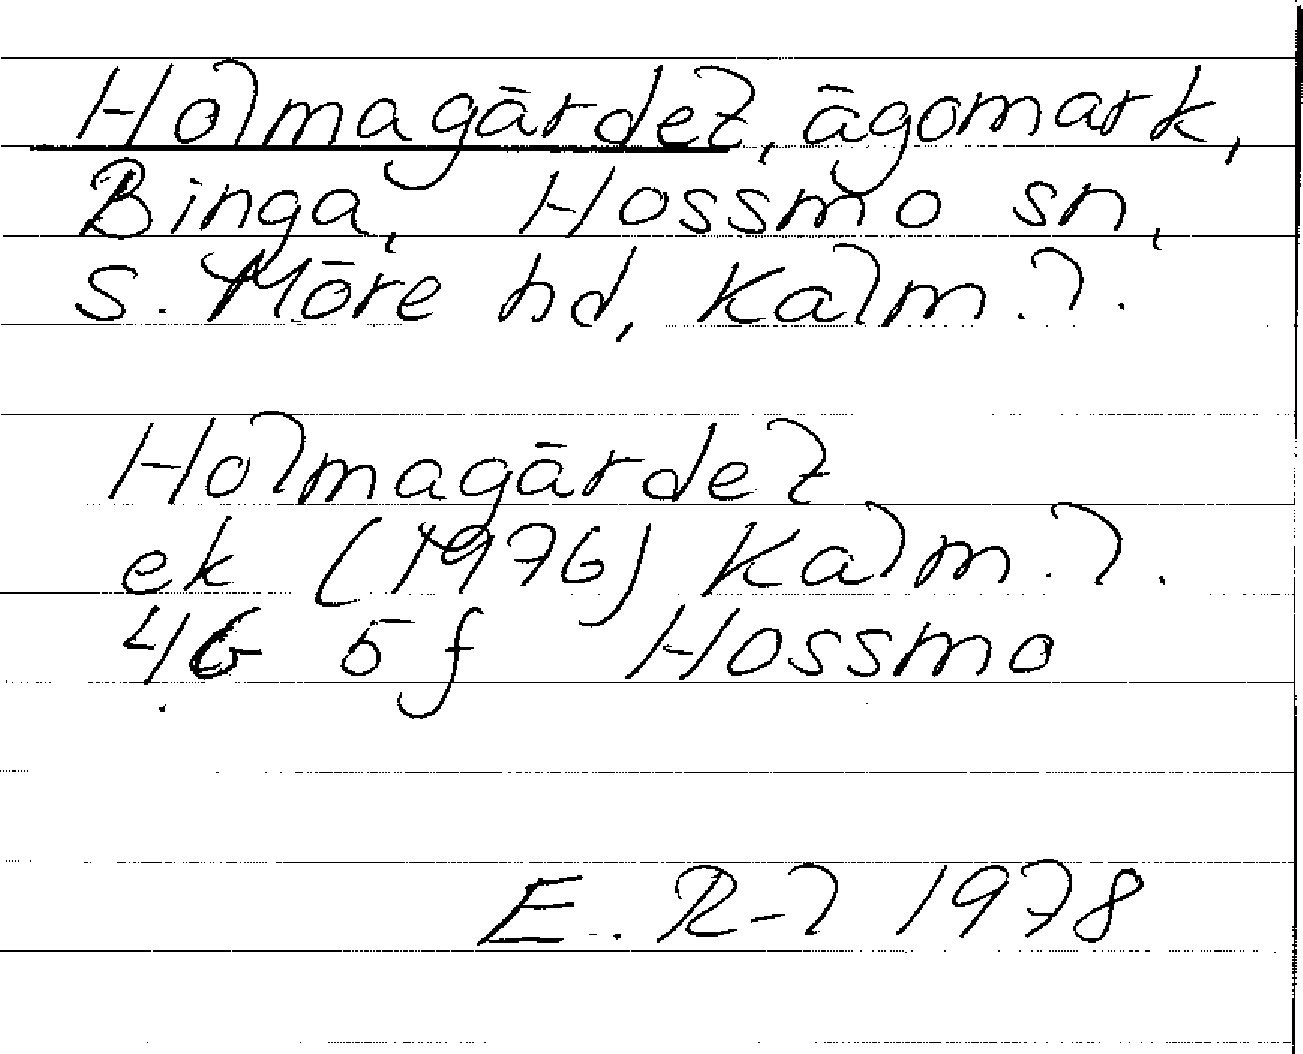 Holmagärdet, ägomark,
Binga, Hossmo sn,
S. Möre hd, Kalm. l.
Holmagärdet
ek (1976) Kalm. l.
4G 5f Hossmo
E. R-l 1978